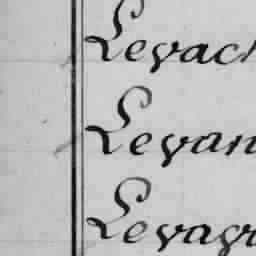 Levach
Levan
Levagr